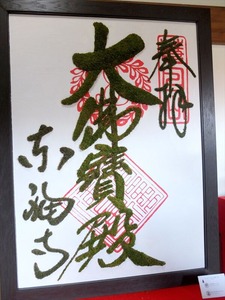 奉拝
大佛寳殿
東福寺